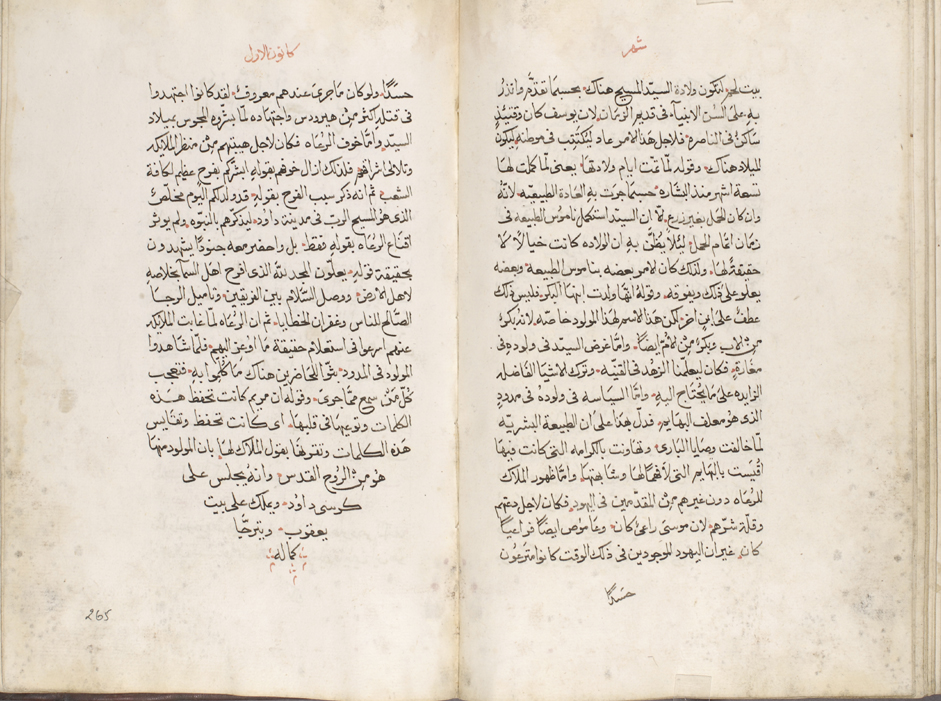 شهر
بيت لحم لتكون ولادة السيد المسيح هناك بحسبما تقدم وانذر
به على السن الانبيآء في قديم الزمان لان يوسف كان وقتيذٍ
ساكن في الناصرة فلاجل هذا الامر عاد ليكتتب في موطنه ليكون
الميلاد هناك وقوله لما تمت ايام ولادتها يعني لما كملت لها
تسعة اشهر منذ البشاره حسبما جرت به العادة الطبيعيه لانه
وان كان الحبل بغير زرع الا ان السيد استكمل ناموس الطبيعه في
زمان اتمام الحمل ليلا يظن به ان الولاده كانت خيالاً لا
حقيقةً لها ولذلك كان الامر بعضه بناموس الطبيعة وبعضه
يعلو على ذلك ويفوته وقوله انها ولدت ابنها البكر فليس ذلك
عطف على ابنٍ اخر لكن هذا الاسم لهذا المولود خاصه لانه بكرٌ
من الاب وبكرٌ من الام ايضاً واما غرض السيد في ولوده في
مغارةٍ فكان ليعلمنا الزهد في القنيه وترك الاشيا الفاضله
الزايده على ما يحتاج اليه واما السياسه في ولوده في مدودٍ
الذي هو معلف البهايم فدل بهذا على ان الطبيعة البشريه
لما خالفت وصايا الباري وتهاونت بالكرامه التي كانت فيها
اقيست بالبهايم التي لا فهم لها وشابهتها واما ظهور الملاك
للرعاه دون غيرهم من المقدمين في اليهود فكان لاجل دعتهم
وقلة شرهم لان موسى راعي كان وعاموص ايضاً فراعياً
كان غير ان اليهود الموجودين في ذلك الوقت كانوا مترعون
حسدًا
كانون الاول
حسدًا ولو كان ما جرى عندهم معروف لقد كانوا اجتهدوا
في قتله اكثر من هيرودس واجتهاده لما بشروه المجوس بميلاد
السيد واما خوف الرعاه فكان لاجل هيبتهم من منظر الملايكه
وتلالي اشراقهم فلذلك ازال خوفهم بقوله ابشركم بفرح عظيم لكافة
الشعب ثم انه ذكر سبب الفرح بقوله قد ولد لكم اليوم مخلص
الذي هو المسيح الرب في مدينة داود ليذكرهم بالنبوه ولم يوثر
اقناع الرعاه بقوله فقط بل واحضر معه جنودًا يشهدون
بحقيقة قوله يعلون المجد لله الذي افرح اهل السما بخلاصه
لاهل الارض ووصل السلام بين الفريقين وتاميل الرجا
الصالح للناس وغفران الخطايا ثم ان الرعاه لما غابت الملايكه
عنهم اسرعوا في استعلام حقيقة ما اوعز اليهم فلما شاهدوا
المولود في المدود بثوا للحاضرين هناك ما كلموا به فتعجب
كل من سمع مما جرى وقوله ان مريم كانت تحفظ هذه
الكلمات وتوعيها في قلبها اي كانت تحفظ وتقايس
هذه الكلمات وتقرنها بقول الملاك لها بان المولود منها
هو من الروح القدس وانه يجلس على
كرسي داود ويملك على بيت
يعقوب ويترجا
كماله
265